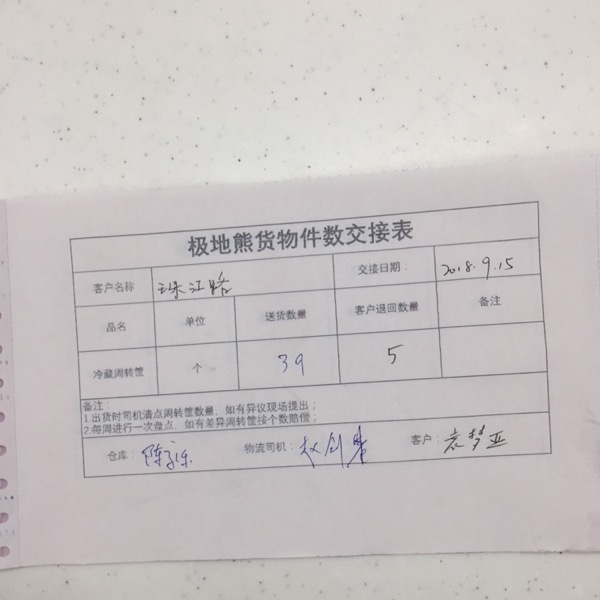 极地熊货物件数交接表
客户名称 珠江路 交接日期: 2018.9.15
品名 单位 送货数量 客户退回数量 备注
冷藏周转筐 个 39 5
备注:
1.出货时司机清点周转筐数量，如有异议现场提出;
2.每周进行一次盘点，如有差异周转筐按个数赔偿;
仓库: 物流司机: 客户: 袁梦亚